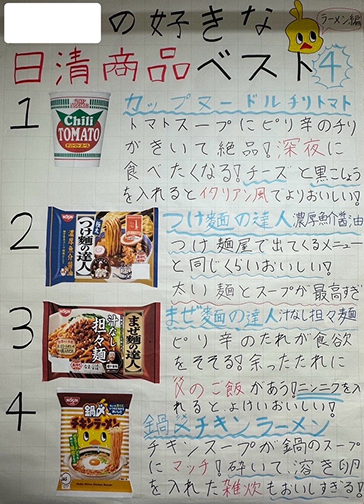 の好きな
ラーメン編
日清商品ベスト4
1
カップヌードルチリトマト
Chili
TOMATO
トマトスープにピリ辛のチリ
がきいて絶品！深夜に
食べたくなる！チーズと黒こしょう
を入れるとイタリアン風でよりおいしい！
2
つけ麺の達人 濃厚魚介醤油
つけ麺の達人
濃厚魚介醤油
つけ麺屋で出てくるメニュー
と同じくらいおいしい！
太い麺とスープが最高すぎ
3
まぜ麺の達人 汁なし担々麺
まぜ麺の達人
汁なし
担々麺
ピリ辛のたれが食欲
をそそる！余ったたれに
〆のご飯があう！ニンニクを入
れるとよけいおいしい！
4
鍋〆チキンラーメン
鍋〆
チキンラーメン
チキンスープが鍋のスープ
にマッチ！砕いて溶き卵
を入れた雑炊もおいしすぎる！